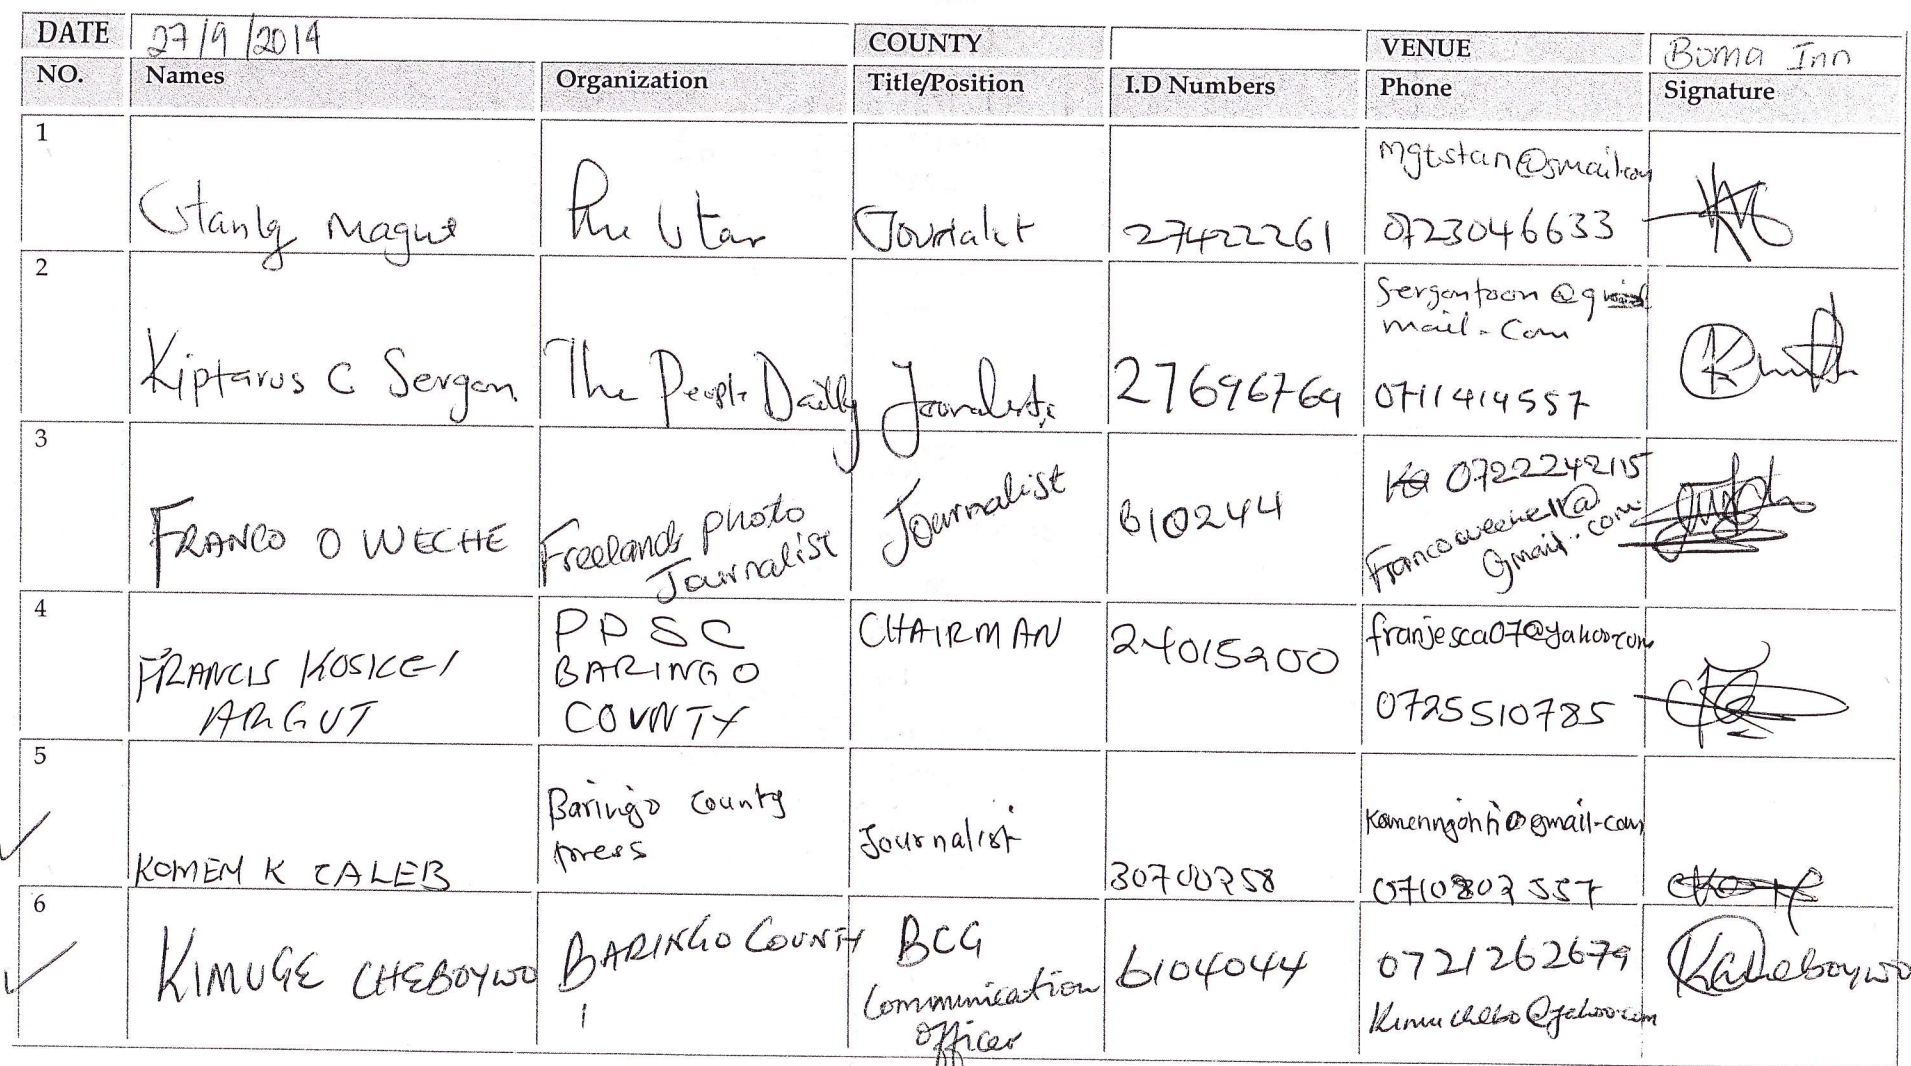 DATE 27/9/2014 COUNTY VENUE Boma Inn
NO. Names Organization Title/Position I.D Numbers Phone Signature
1
Stanly Magut The Star Journalist 27422261
mgtstan@gmail.com
0723046633
2
Kiptarus C Sergon The People Daily Journalist 27696769
@g
mail.com
0711414557
3
FRANCO O WECHE
Freelands photo
Journalist
Journalist
610244
0722242115
gmail.com
4
FRANCIS KOSKEI
ARGUT
PPSC
BARINGO
COUNTY
CHAIRMAN
24015200
franjesca07@yahoo.com
0725510785
5
KOMEN K CALEB
Baringo County
press
Journalist
@gmail.com
6
KIMUGE CHEBOYWO
BARINGO COUNTY
BCG
Communication
Officer
6104044
0721262679
@yahoo.com